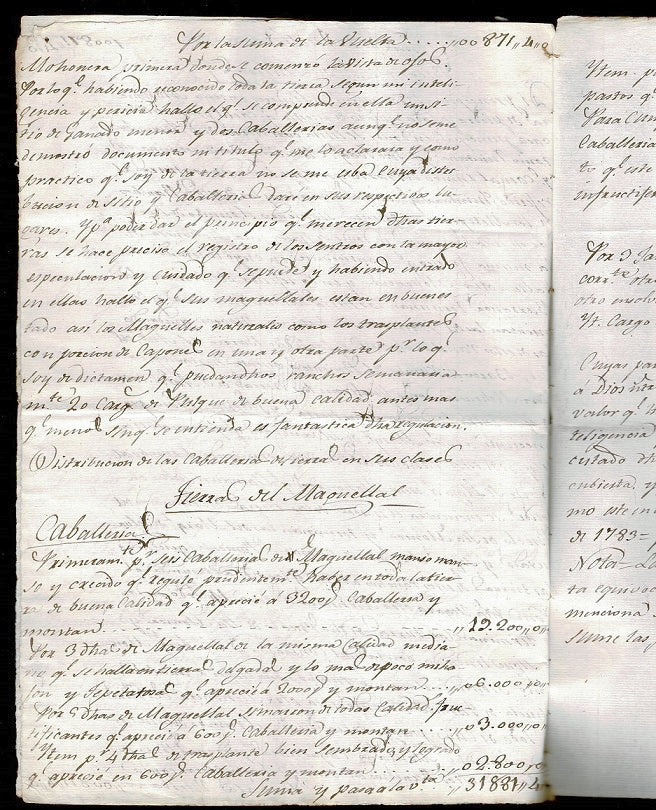 Por la suma de la Vuelta ..... ,,00871,,4,,0
Mohonera primera donde se comenzó la Vista de ojos.
Por lo q.e habiendo reconocido toda la tierra segun mi inteli-
gencia y pericia hallo el q.e se comprende en ella un si-
tio de ganado menor y dos Caballerias aunq.e no se me
demostró documento ni titulo q.e me lo aclarara y como
practico q.e soy de la tierra no se me
bucion de sitio y caballerias daré en sus respectivos lu-
gares. Y p.a poder dar el principio q.e merecen dhas tier-
ras se hace preciso el registro de los Sentros con la mayor
especulacion y cuidado q.e se puede y habiendo entrado
en ellas hallo el q.e sus maguellales estan en buen es-
tado asi los Maguelles naturales como los trasplantes
con porcion de Capones en una y otra parte p.r lo q.e
soy de dictamen q.e puedan dhos ranchos
m.te 20 Carg.s de Pulque de buena calidad antes mas
q.e menos sin q.e se entienda es fantastica dha regulacion.
Distribucion de las Caballerias de tierra en sus clases
Tierras del Maguellal
Caballerias
Primeram.te p.r seis Caballerias de Maguellal manso man-
so y creado q.e regulo prudentem.te haber en toda la tier-
ra de buena Calidad q.e apreció a 3200p.s Caballeria y
montan ..... ,,19.200,,0,,
Por 3 dhas de Maguellal de la misma Calidad media-
no q.e se halla en tierras delgadas y lo mas de poco
son y Tepetatosa q.e apreció a 2000p.s y montan .... ,,06.000,,0,,
Por 5 dhas de Maguellal Simarron de todas Calidad.s fruc-
tificantes q.e apreció a 600p.s Caballeria y montan ,,03.000,,0,,
Ytem p.r 4 dhas de trasplante bien sembradas y logrado
q.e apreció en 600p.s Caballeria y montan ..... ,,02.800,,0,,
Suma y pasa a la v.ta ,,31881,,4,,
Ytem p
pastos q.e
Para Cum
Caballeria
to q.e este
infructife
Por 3 
corr.te otra
otro
Yt. Cargo
Cuyas par
a Dios ntr
valor q.e h
teligencia
cultado dh
cubierta y
mo este en
de 1783=
Nota= La
ta equivoc
menciona
Sume las p